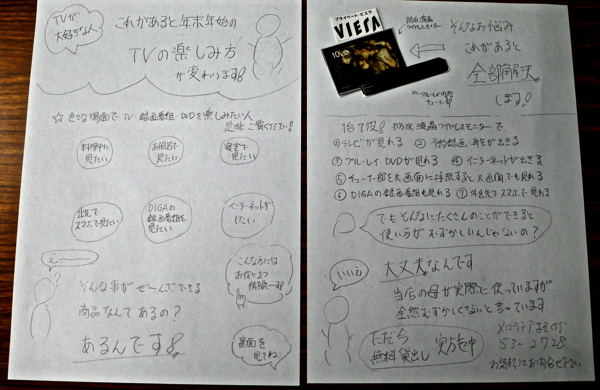 TVが
大好きな人
これがあると年末年始の
TVの楽しみ方
が変わります!
☆ 色々な場面でTV・録画番組・DVDを楽しみたい人
是非ご覧ください!
料理中に
見たい
お風呂で
見たい
寝室で
見たい
出先で
スマホで見たい
DIGAの
録画番組を
見たい
インターネットが
したい
えー
こんな方には
お役に立つ
情報でーす!
そんな事がぜーんぶできる
商品なんてあるの?
あるんです!
裏面を
見てね!
プライベート・ビエラ
VIERA
防水液晶
ワイヤレスモニター
ブルーレイ/DVD
チューナー部
そんなお悩み
これがあると
全部解決
します!
1台7役! 防水液晶ワイヤレスモニターで
のテレビが見れる ② 予約録画・再生が出きる
③ ブルーレイ・DVDが見れる ④ インターネットが出きる
⑤ チューナー部を大画面に接続すると大画面でも見れる
⑥ DIGAの録画番組も見れる ⑦ 外出先でスマホで見れる
でもそんなにたくさんのことができると
使い方がむずかしいんじゃないの?
いいえ
大丈夫なんです
当店の母が実際に使っていますが
全然むずかしくないと言っています
ただ今
無料貸出し 実施中
53-2728
お気軽にお問合せ下さい